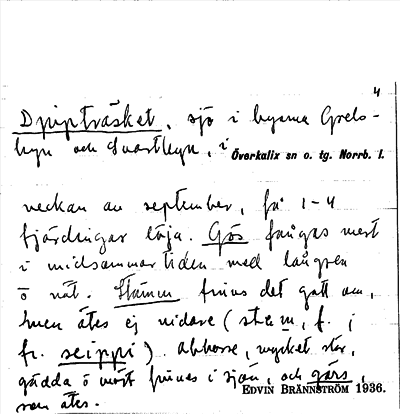 4
Djupträsket, sjö i byarna Grels-
byn och Svartbyn, i Överkalix sn o. tg. Norrb. l.
veckan av september, få 1-4
fjärdingar löja. Gös fångas mest
i midsommartiden med långrev
o nät. Stämm finns det gott om,
men ätes ej vidare (stem, f. ;
fr. seippi). Abborre, mycket stör,
gädda o mört finnes i sjön, och gärs,
som ätes.
EDVIN BRÄNNSTRÖM 1936.